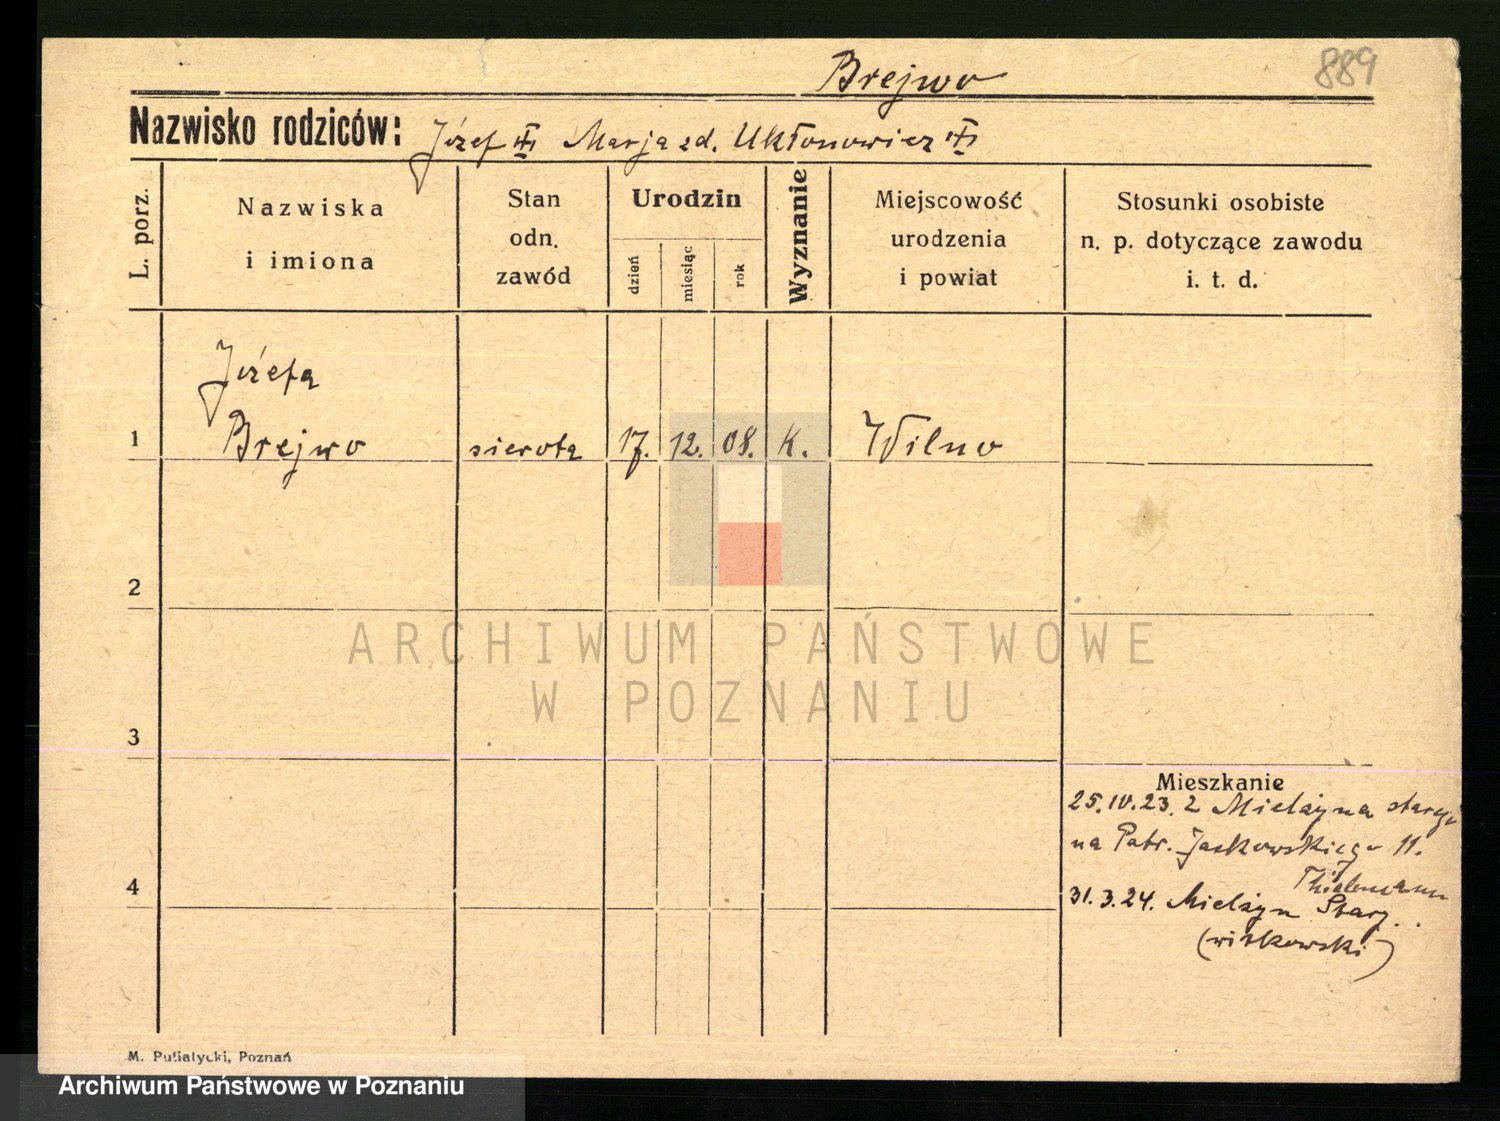 Brejwo
889
Nazwisko rodziców: Józef Marja zd. Ukłonowicz
L. porz.
Nazwiska
i imiona
Stan
odn.
zawód
Urodzin
dzień
miesiąc
rok
Wyznanie
Miejscowość
urodzenia
i powiat
Stosunki osobiste
n. p. dotyczące zawodu
i. t. d.
Józefa
1 Brejwo sierota 17. 12. 08. K. Wilno
2
ARCHIWUM PAŃSTWOWE
W POZNANIU
3
Mieszkanie
25.IV.23. z Mielżyna
na Patr. Jackowskiego 11.
Thielemann
4
31.3.24. Mielżyn
(witkowski)
M. Putiatycki, Poznań
Archiwum Państwowe w Poznaniu